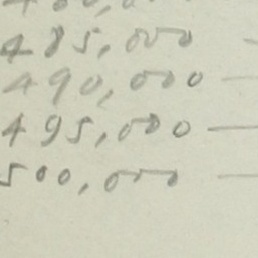 480,000
485,000 —
490,000 —
495,000 —
500,000 —